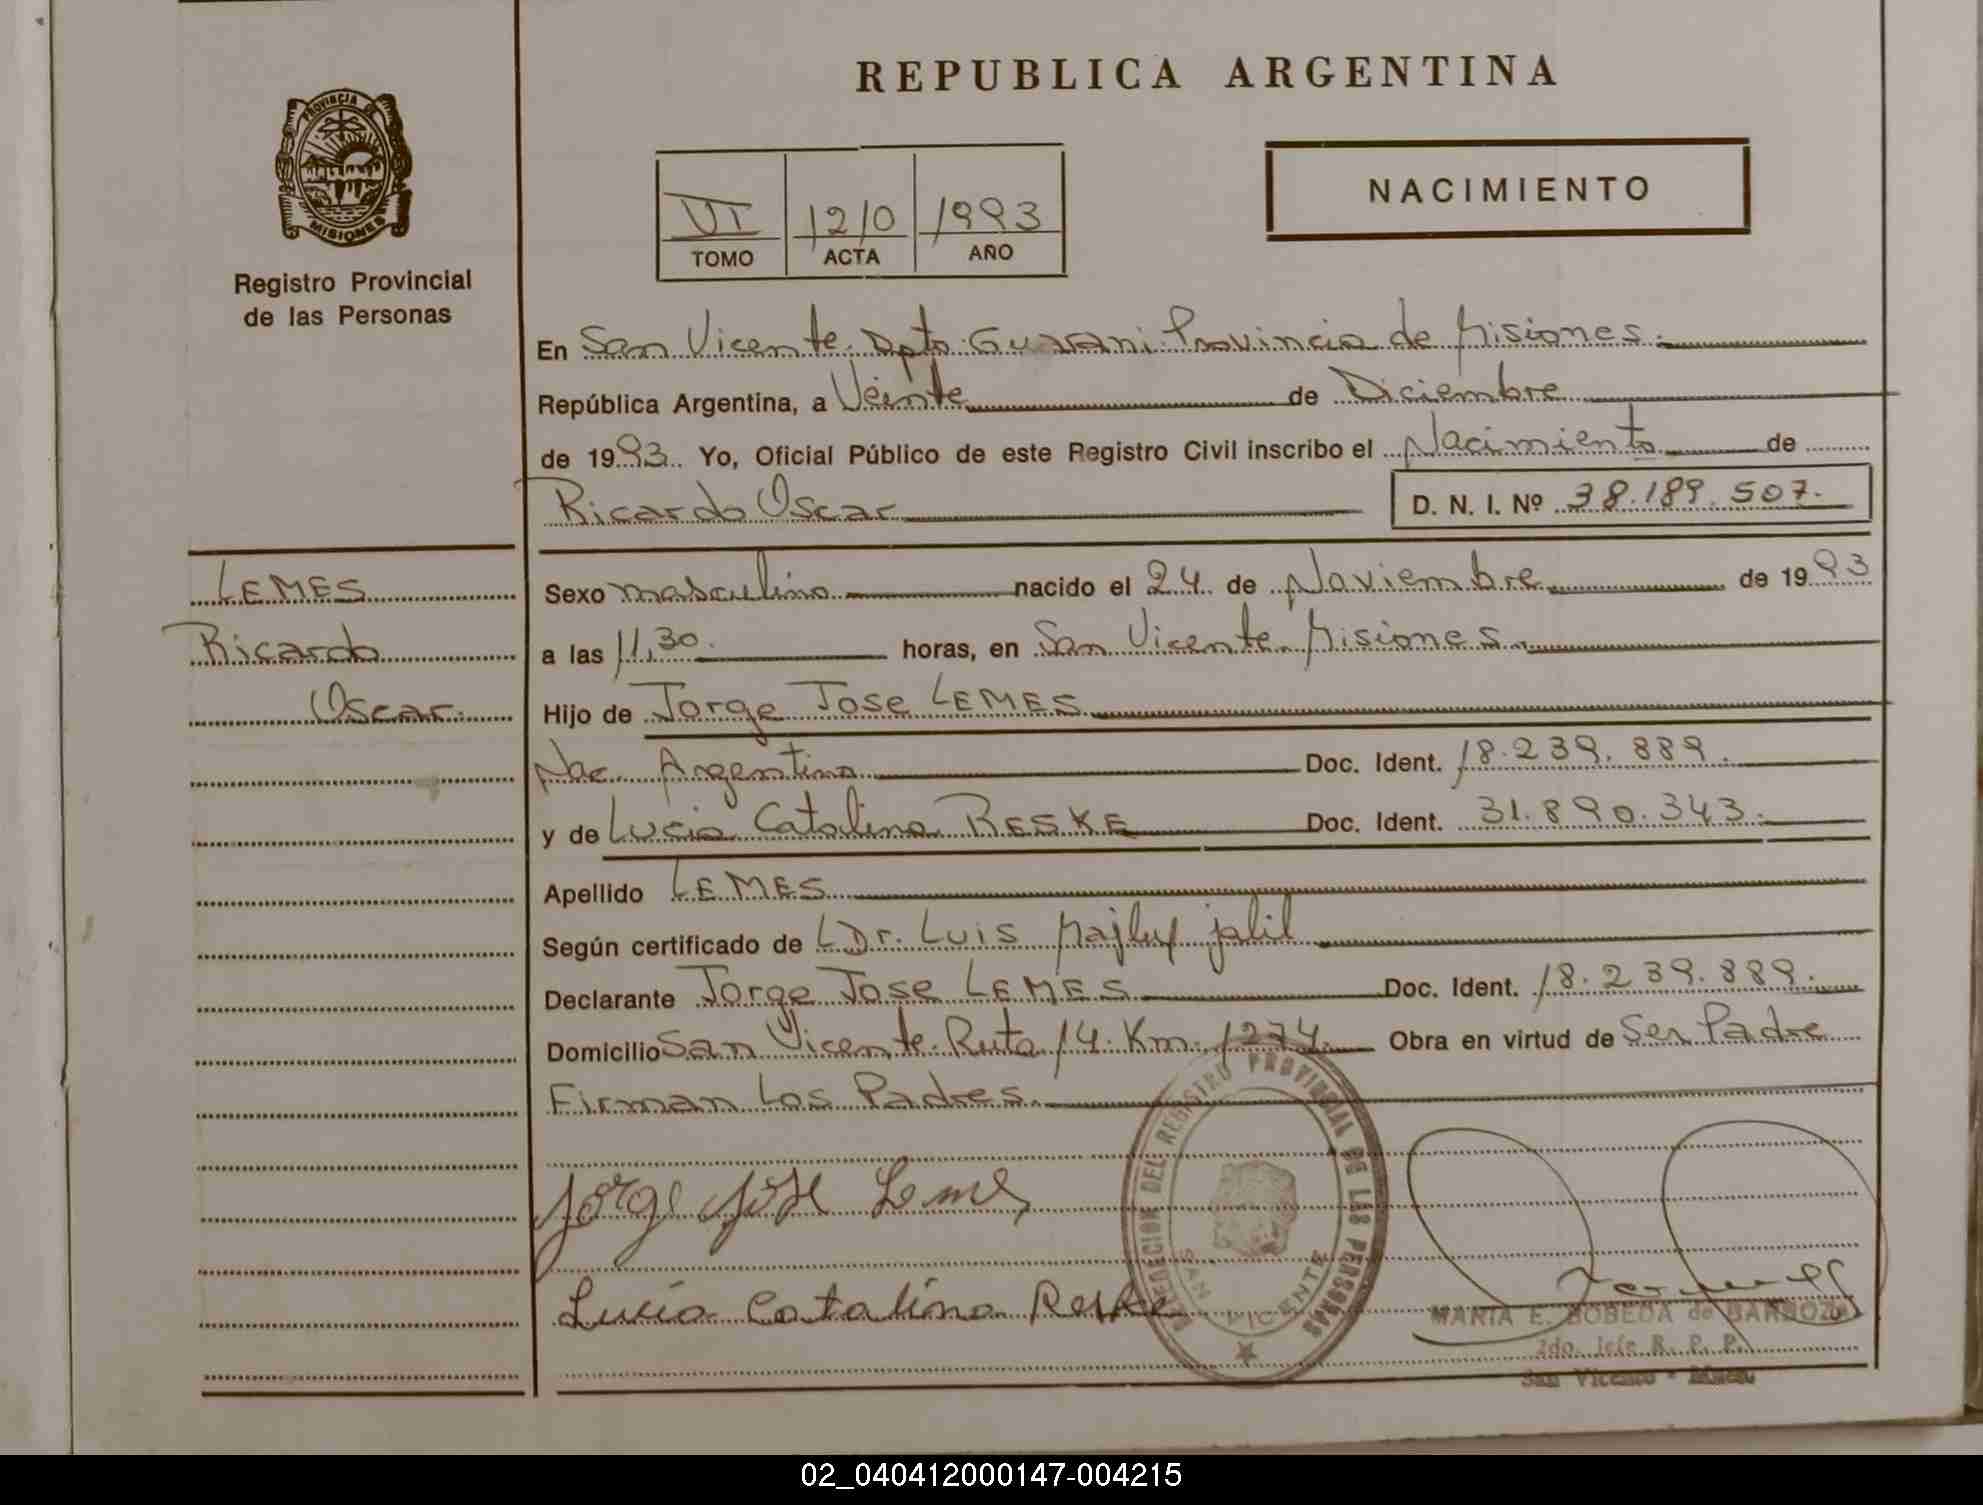 REPUBLICA ARGENTINA
PROVINCIA DE
MISIONES
Registro Provincial
de las Personas
VI 1210 1993
TOMO ACTA AÑO
NACIMIENTO
En San Vicente Dpto Guarani Provincia de Misiones.
República Argentina, a Veinte de Diciembre
de 1993 Yo, Oficial Público de este Registro Civil inscribo el Nacimiento de
Ricardo Oscar D. N. I. Nº 38.189.507.
LEMES
Ricardo
Oscar.
Sexo masculino nacido el 24 de Noviembre de 1993
a las 11,30. horas, en San Vicente Misiones.
Hijo de Jorge Jose LEMES
Nac. Argentina Doc. Ident. 18.239.889.
y de Lucia Catalina RESKE Doc. Ident. 31.890.343.
Apellido LEMES
Según certificado de Dr. Luis jalil
Declarante Jorge Jose LEMES Doc. Ident. 18.239.889.
Domicilio San Vicente Ruta 14. Km. 1274. Obra en virtud de Ser Padre
Firman Los Padres.
Jorge José Lemes
Lucia Catalina Reske
DEL REGISTRO PROVINCIAL DE LAS PERSONAS
SAN VICENTE
MARIA E. BOBEDA de BARBOZA
2do. Jefe R. P. P.
San Vicente - Mnes.
02_040412000147-004215